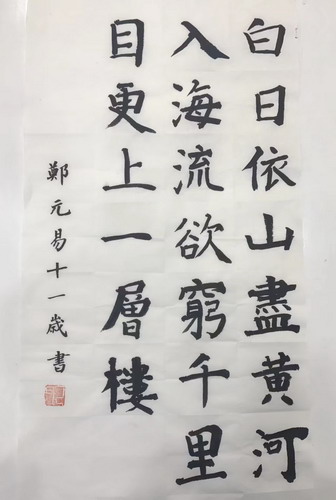 白日依山盡黃河
入海流欲窮千里
目更上一層樓
鄭元易十一歲書